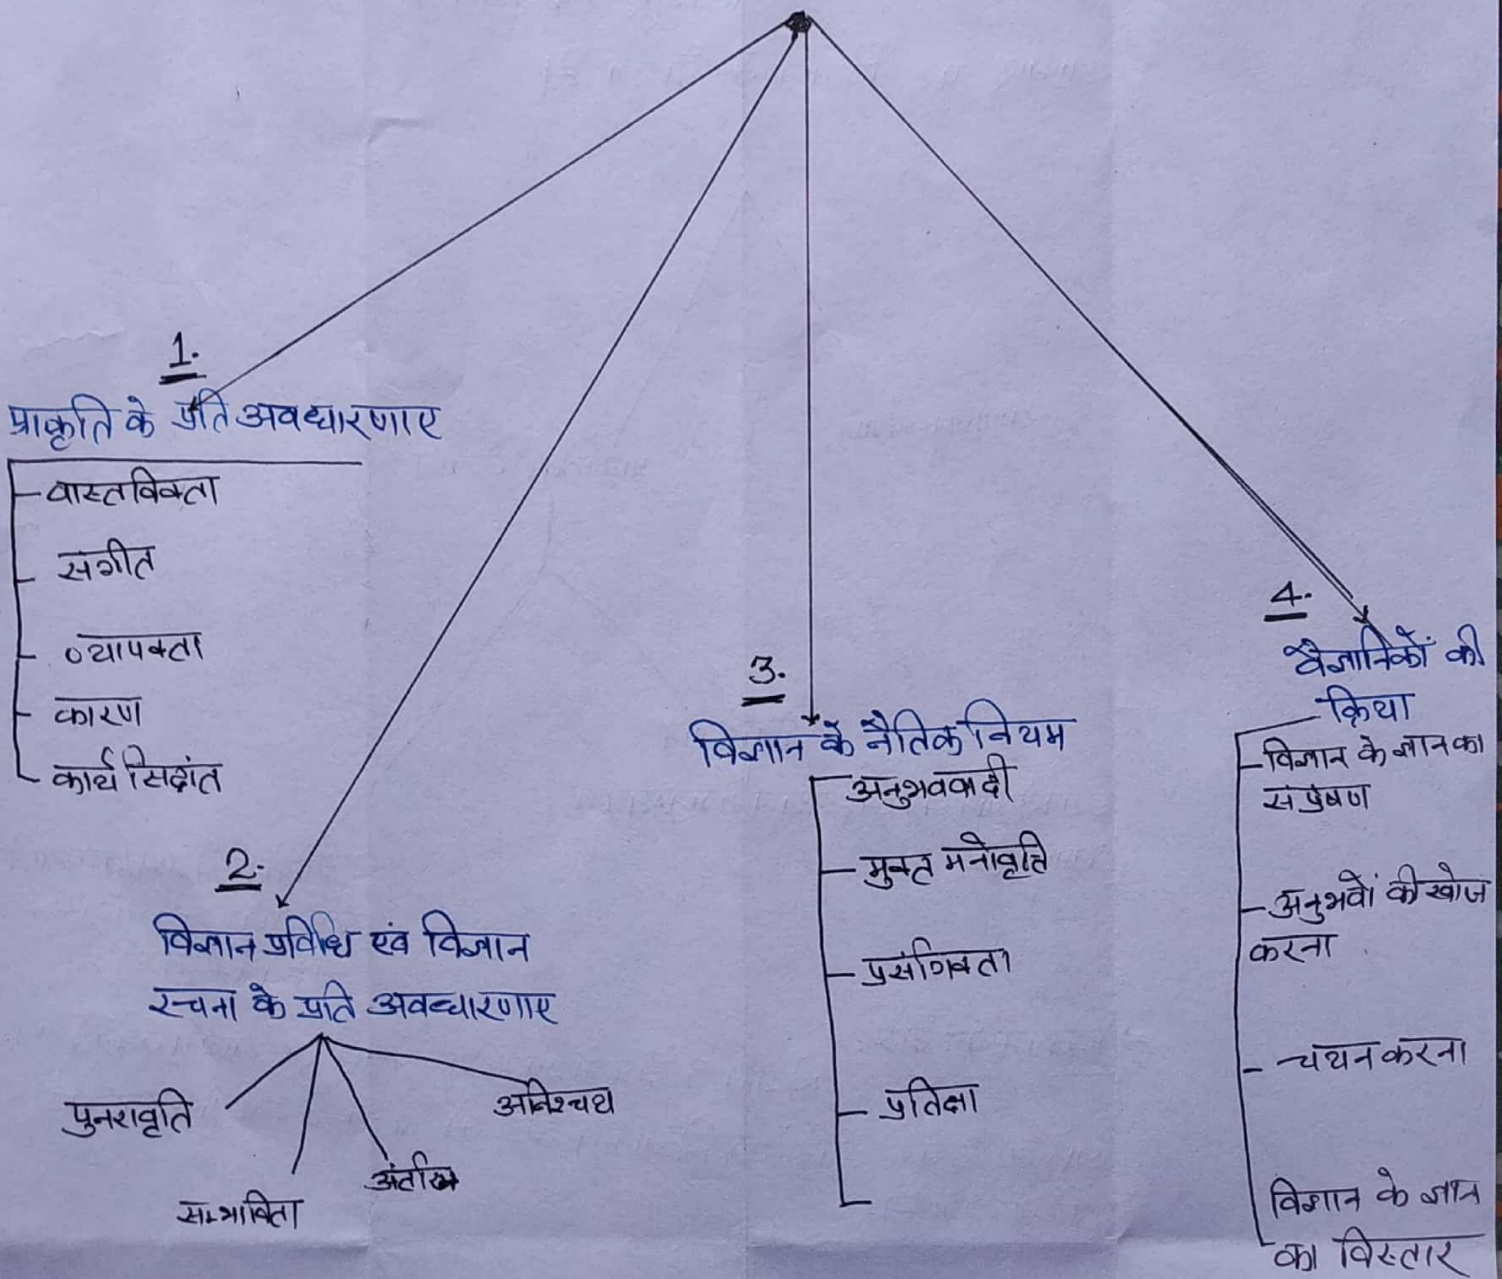 1.
प्राकृति के प्रति अवधारणाए
वास्तविक्ता
सगीत
व्यापक्ता
कारण
कार्य सिद्धांत
2.
विज्ञान प्रविधि एवं विज्ञान
रचना के प्रति अवधारणाए
पुनरावृति
सम्भाविता
अनिश्चय
3.
विज्ञान के नैतिक नियम
अनुभववादी
मुक्त मनोवृति
प्रसंगिक्ता
प्रतिक्षा
4.
वैज्ञानिकों की
क्रिया
विज्ञान के ज्ञान का
सप्रेषण
अनुभवों की खोज
करना
चयन करना
विज्ञान के ज्ञान
का विस्तार